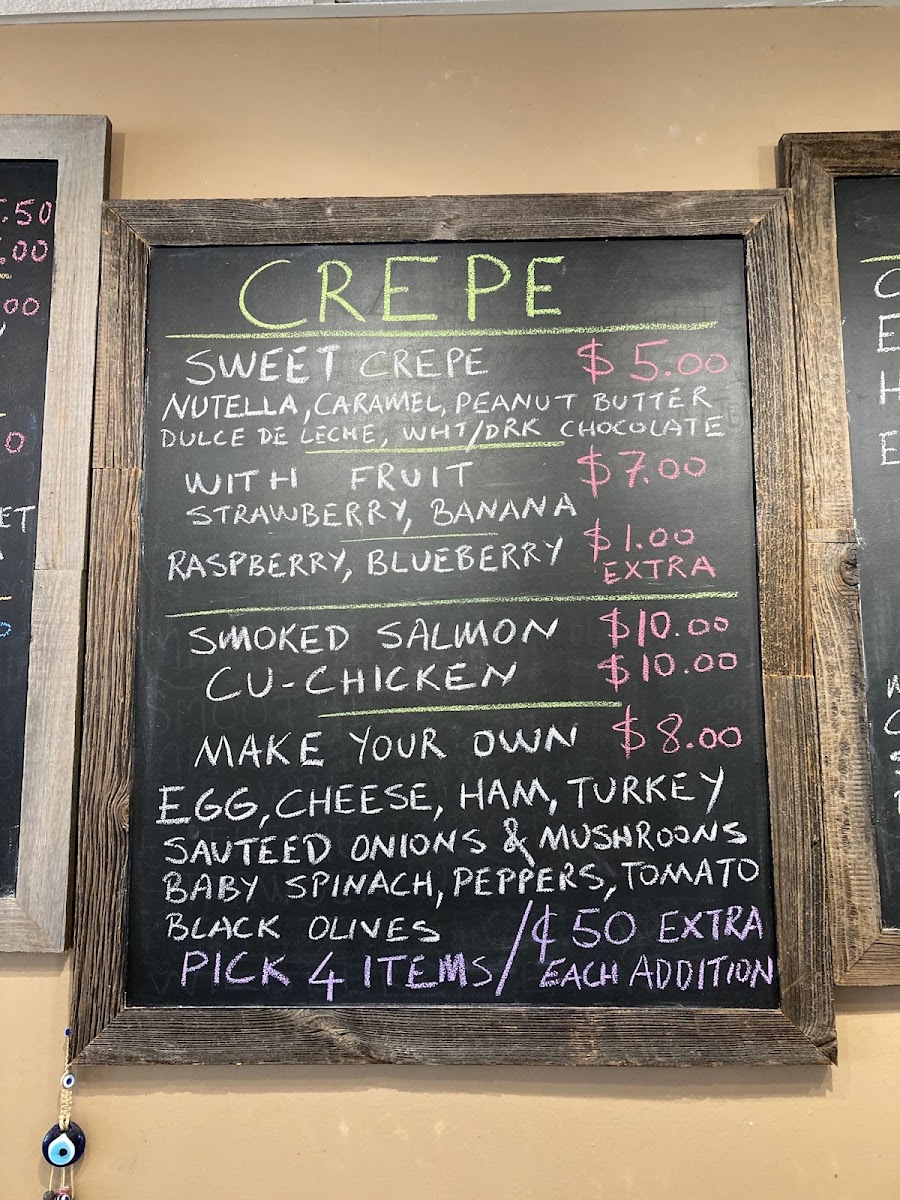 CREPE
SWEET CREPE $5.00
NUTELLA, CARAMEL, PEANUT BUTTER
DULCE DE LECHE, WHT/DRK CHOCOLATE
WITH FRUIT $7.00
STRAWBERRY, BANANA
RASPBERRY, BLUEBERRY $1.00 EXTRA
SMOKED SALMON $10.00
CU-CHICKEN $10.00
MAKE YOUR OWN $8.00
EGG, CHEESE, HAM, TURKEY
SAUTEED ONIONS & MUSHROONS
BABY SPINACH, PEPPERS, TOMATO
BLACK OLIVES
PICK 4 ITEMS / ¢50 EXTRA
EACH ADDITION
.50
.00
00
0
ET